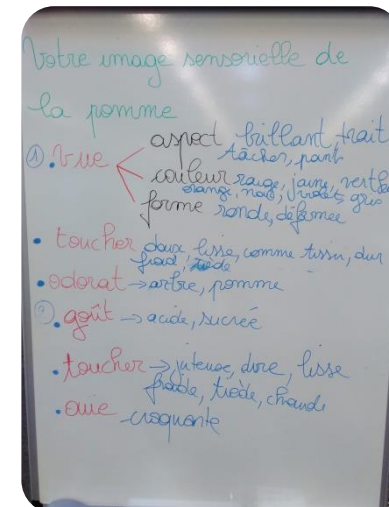 Votre image sensorielle de
la pomme
① . vue
aspect brillant, trait
tâcher, point
couleur rouge, jaune, verte
orange, noir, violet, gris
forme ronde, déformée
• toucher doux, lisse, comme tissu, dur
froid, tiède
• odorat → arbre, pomme
② . goût → acide, sucrée
• toucher → juteuse, dure, lisse
froide, tiède, chaude
• ouie croquante